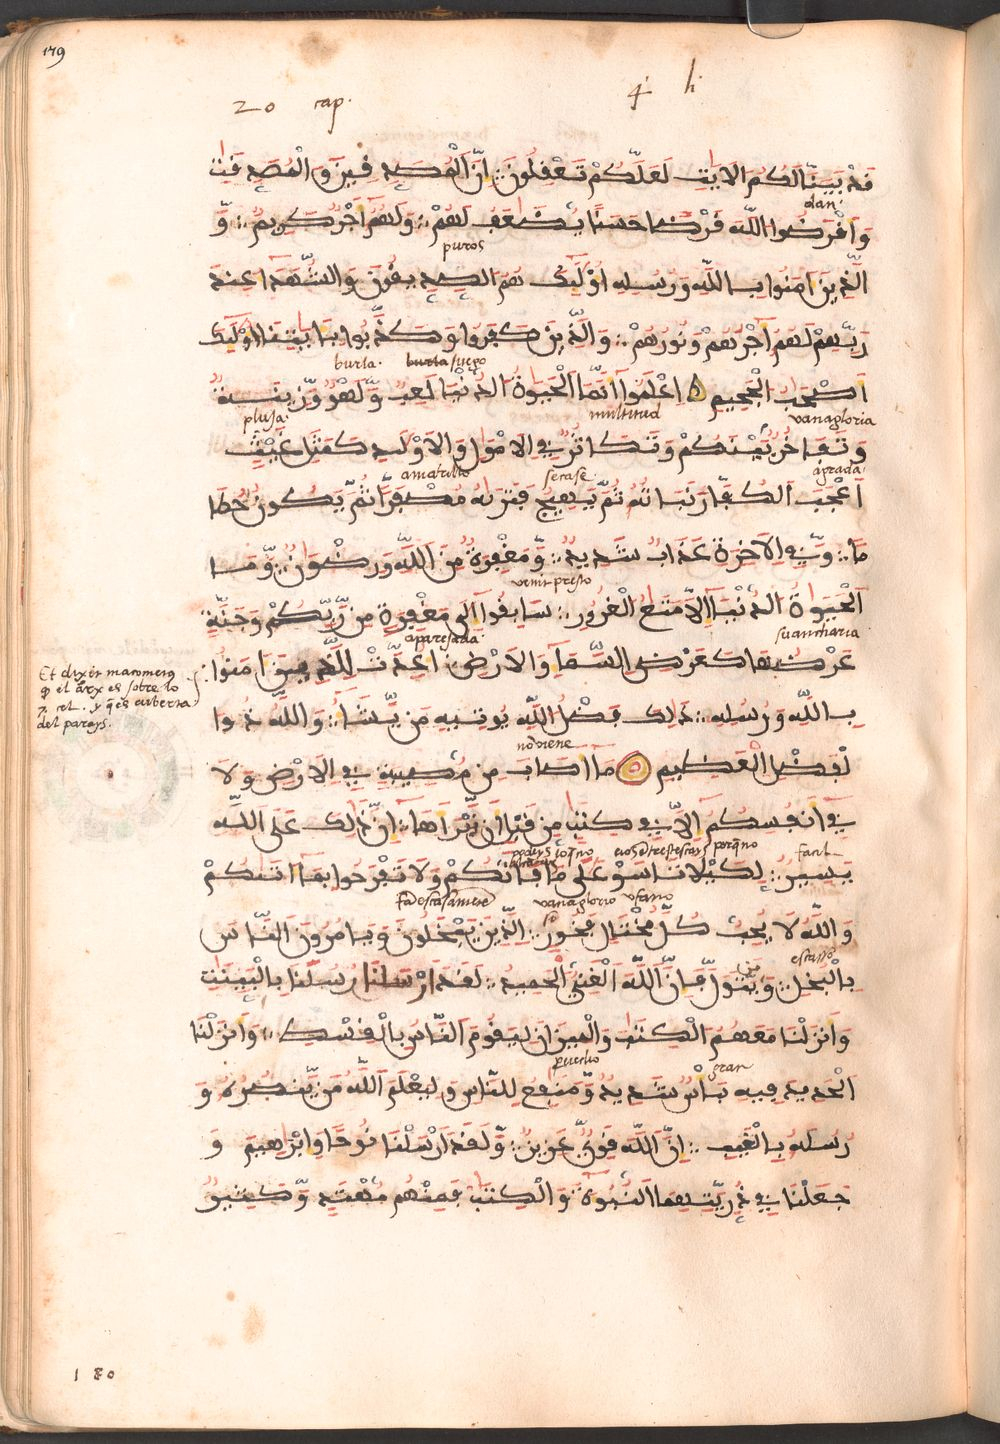 179
20 cap. 4 h
قَدْ بَيَّنَّا لَكُمُ الَايَٰتِ لَعَلَّكُمْ تَعْقِلُونَ اِنَّ الْمُصَّدِّقِينَ وَالْمُصَّدِّقَٰتِ
dan
وَأَقْرَضُوا اللَّهَ قَرْضًا حَسَنًا يُضَٰعَفُ لَهُمْ وَلَهُمُ أَجْرٌ كَرِيمٌ وَ
puros
الَّذِينَ ءَامَنُوا بِاللَّهِ وَرُسُلِهِ أُوْلَٰئِكَ هُمُ الصِّدِّيقُونَ وَالشُّهَدَاءُ عِندَ
رَبِّهِمْ لَهُمُ أَجْرُهُمْ وَنُورُهُمْ وَالَّذِينَ كَفَرُوا وَكَذَّبُوا بِـَٔايَٰتِنَا أُوْلَٰئِكَ
burla. burla juego
أَصْحَٰبُ الْجَحِيمِ اِعْلَمُوا أَنَّمَا الْحَيَوٰةُ الدُّنْيَا لَعِبٌ وَّلَهْوٌ وَّزِينَةٌ
plusa. multitud vanagloria
وَتَفَاخُرٌ بَيْنَكُمْ وَتَكَاثُرٌ فِي الَامْوَٰلِ وَالَاوْلَٰدِ كَمَثَلِ غَيْثٍ
amarillo secase agrada.
اَعْجَبَ الْكُفَّارَ نَبَاتُهُ ثُمَّ يَهِيجُ فَتَرَيٰهُ مُصْفَرًّا ثُمَّ يَكُونُ حُطَٰ
مًا وَّفِي الَاخِرَةِ عَذَابٌ شَدِيدٌ وَّمَغْفِرَةٌ مِّنَ اللَّهِ وَرِضْوَٰنٌ وَّمَا
venir presto
الْحَيَوٰةُ الدُّنْيَا إِلَّا مَتَٰعُ الْغُرُورِ سَابِقُوا إِلَى مَغْفِرَةٍ مِّن رَّبِّكُمْ وَجَنَّةٍ
aparejada. su ancharia
عَرْضُهَا كَعَرْضِ السَّمَاءِ وَالَارْضِ أُعِدَّتْ لِلَّذِينَ ءَامَنُوا
Et dixit maometus
q el arx es sobre lo
7. cel. y q es cuberta
del parays.
بِاللَّهِ وَرُسُلِهِ ذَٰلِكَ فَضْلُ اللَّهِ يُوتِيهِ مَن يَّشَاءُ وَاللَّهُ ذُوا
no viene
لْفَضْلِ الْعَظِيمِ مَا أَصَابَ مِن مُّصِيبَةٍ فِي الَارْضِ وَلَا
فِي أَنفُسِكُمُ إِلَّا فِي كِتَٰبٍ مِّن قَبْلِ أَن نَّبْرَأَهَا إِنَّ ذَٰلِكَ عَلَى اللَّهِ
porq no facil
يَسِيرٌ لِكَيْلَا تَاسَوْا عَلَى مَا فَاتَكُمْ وَلَا تَفْرَحُوا بِمَا ءَاتَيٰكُمْ
vanaglorio ufano
وَاللَّهُ لَا يُحِبُّ كُلَّ مُخْتَالٍ فَخُورٍ الَّذِينَ يَبْخَلُونَ وَيَامُرُونَ النَّاسَ
escasso
بِالْبُخْلِ وَمَن يَّتَوَلَّ فَإِنَّ اللَّهَ الْغَنِيُّ الْحَمِيدُ لَقَدَ أَرْسَلْنَا رُسُلَنَا بِالْبَيِّنَٰتِ
وَأَنزَلْنَا مَعَهُمُ الْكِتَٰبَ وَالْمِيزَانَ لِيَقُومَ النَّاسُ بِالْقِسْطِ وَأَنزَلْنَا
puecho gran
الْحَدِيدَ فِيهِ بَأْسٌ شَدِيدٌ وَّمَنَٰفِعُ لِلنَّاسِ وَلِيَعْلَمَ اللَّهُ مَن يَّنصُرُهُ وَ
رُسُلَهُ بِالْغَيْبِ إِنَّ اللَّهَ قَوِيٌّ عَزِيزٌ وَّلَقَدَ أَرْسَلْنَا نُوحًا وَإِبْرَٰهِيمَ وَ
جَعَلْنَا فِي ذُرِّيَّتِهِمَا النُّبُوءَةَ وَالْكِتَٰبَ فَمِنْهُم مُّهْتَدٍ وَّكَثِيرٌ
180